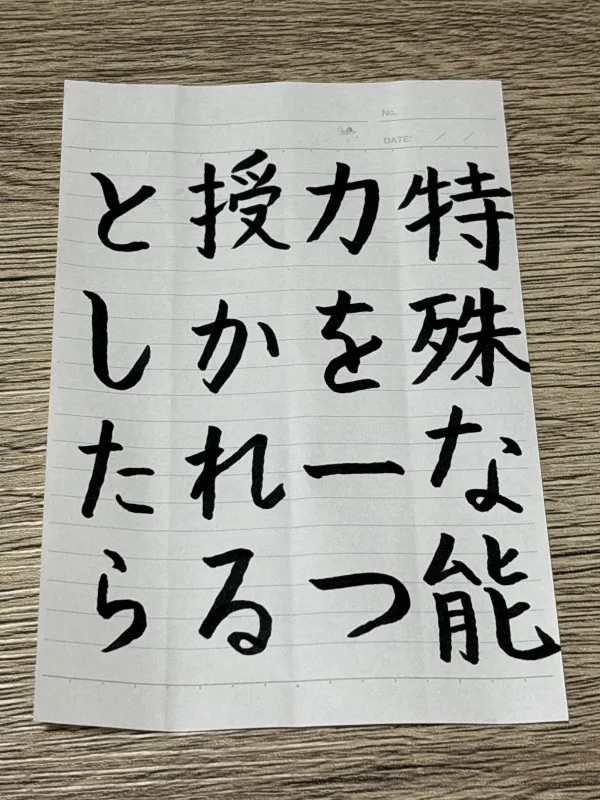 No.
DATE: / /
特殊な能
力を一つ
授かれる
としたら